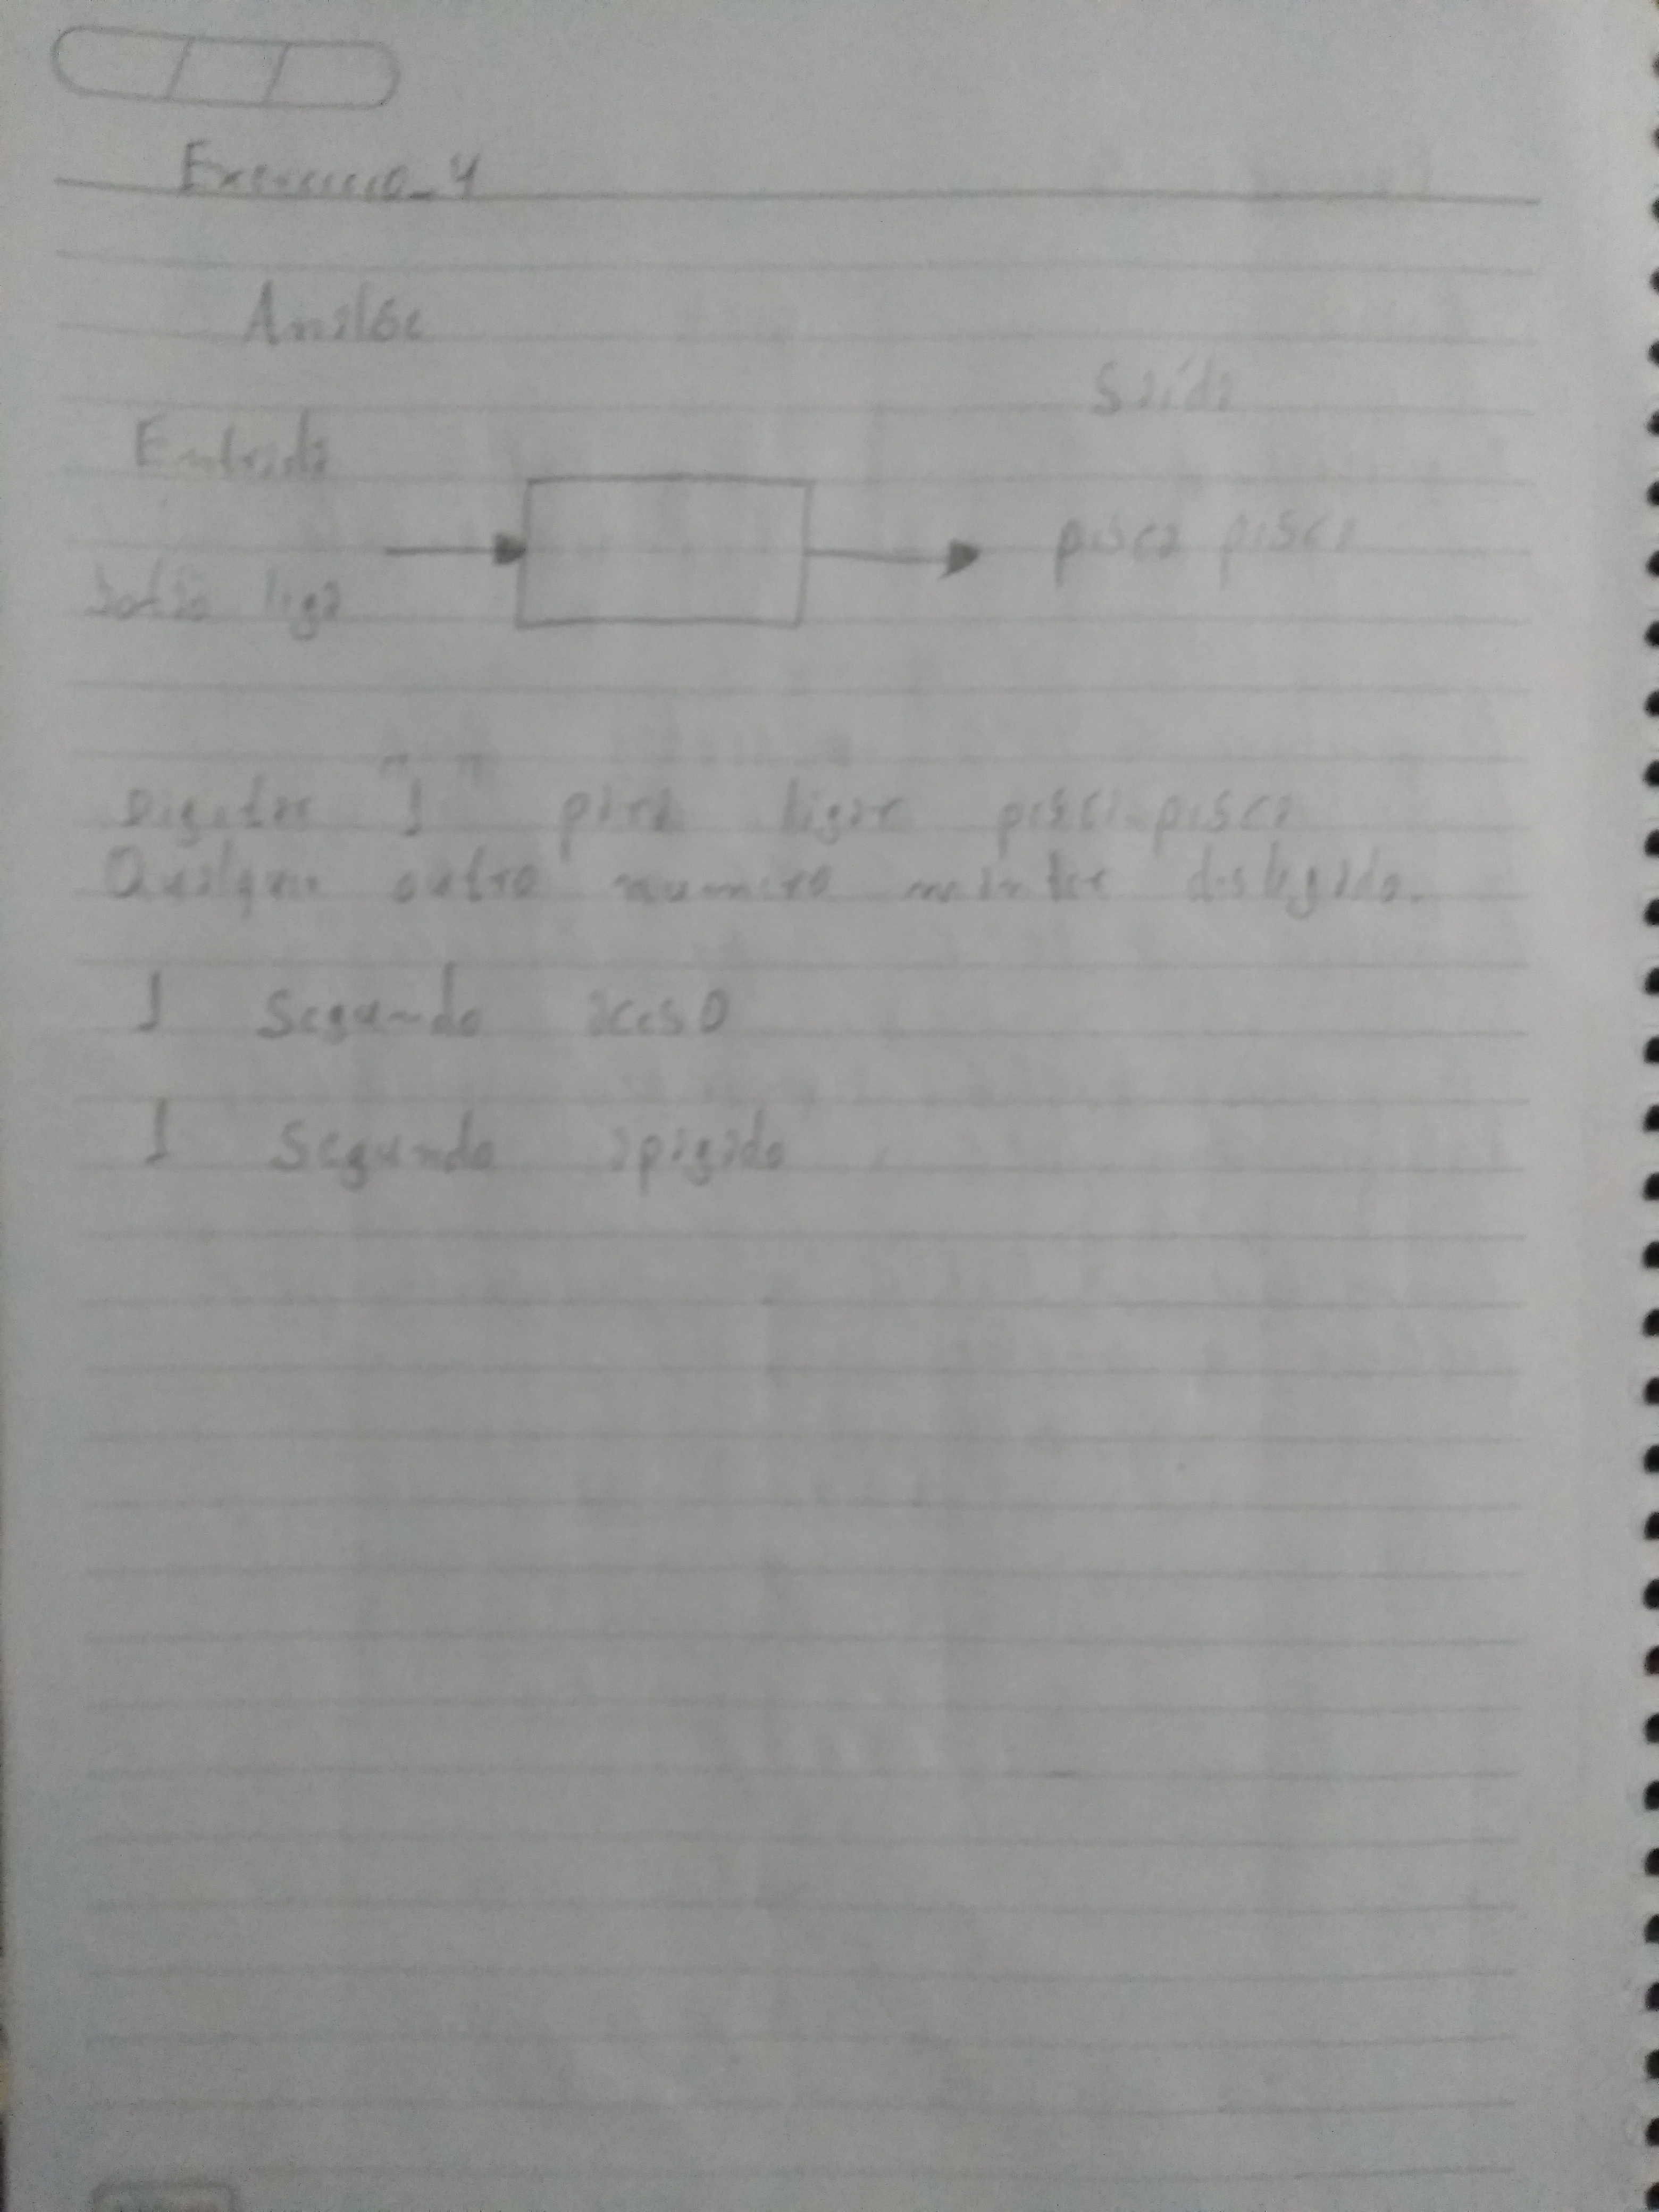 Exercicio_4
Análise
Saída
Entrada
pisca pisca
botão liga
Digitar "1" para ligar pisca-pisca
Qualquer outro numero manter desligado.
1 Segundo aceso
1 Segundo apagado